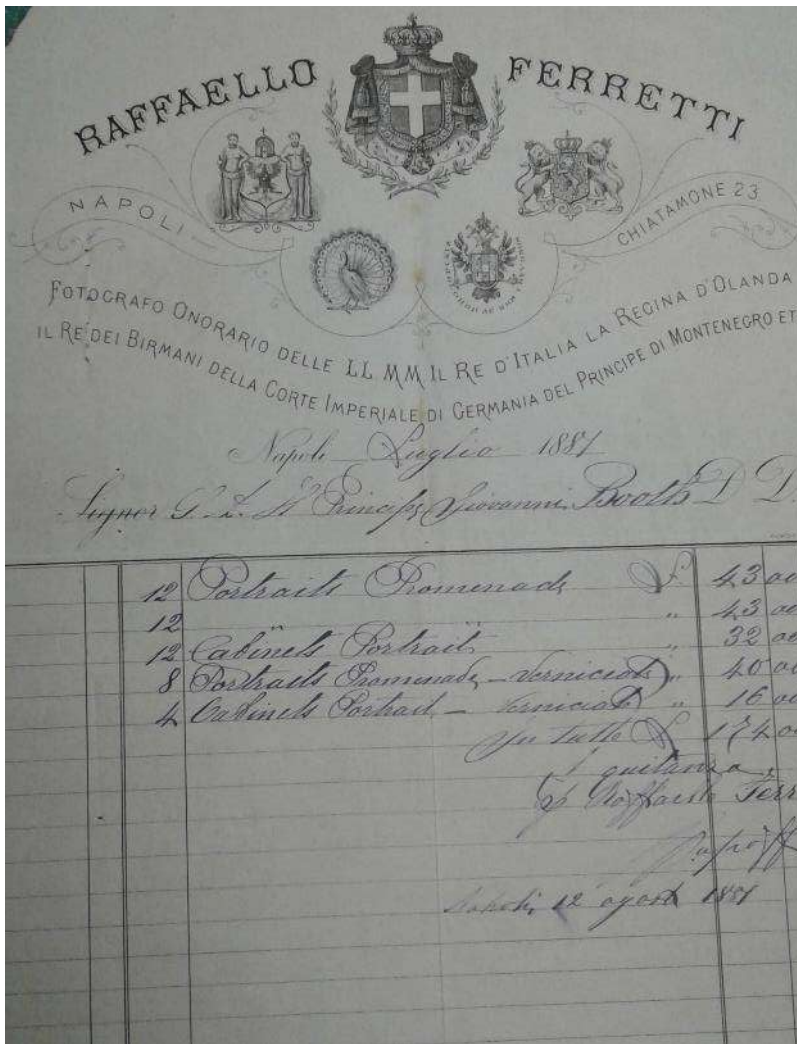 RAFFAELLO FERRETTI
NAPOLI
CHIATAMONE 23
FOTOGRAFO ONORARIO DELLE LL MM IL RE D'ITALIA LA REGINA D'OLANDA
IL RE DEI BIRMANI DELLA CORTE IMPERIALE DI GERMANIA DEL PRINCIPE DI MONTENEGRO ET
Napoli Luglio 1881
Signor Principe Giovanni Booth D D
12 Portraits Promenade £. 43 00
12 " " 43 00
12 Cabinets Portrait " 32 00
8 Portraits Promenade - Verniciati " 40 00
4 Cabinets Portrait - Verniciati " 16 00
In tutto £ 174 00
quitanza
Napoli, 12 agosto 1881